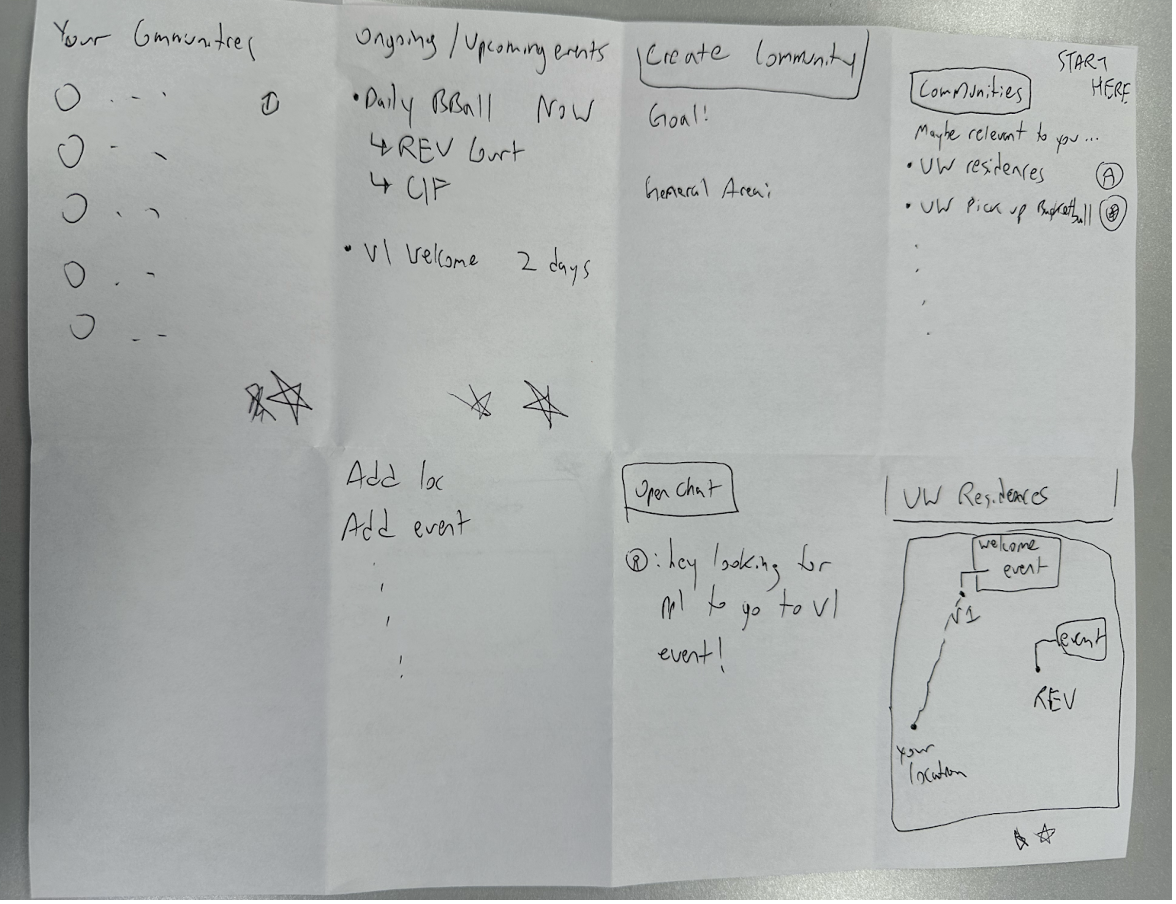 Your Communities
①
Ongoing / Upcoming events
• Daily BBall NOW
↳ REV Court
↳ CIF
• V1 Welcome 2 days
Create Community
Goal:
General Area:
START
HERE
Communities
Maybe relevant to you...
• UW residences Ⓐ
• UW Pick up Basketball
Add loc
Add event
Open Chat
Ⓡ: hey looking for
ppl to go to V1
event!
UW Residences
welcome
event
V1
event
REV
your
location